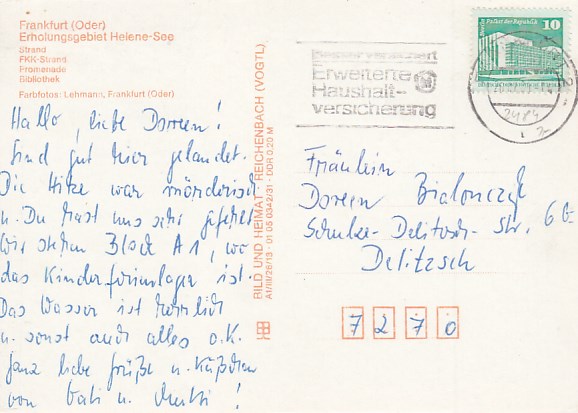 Frankfurt (Oder)
Erholungsgebiet Helene-See
Strand
FKK-Strand
Promenade
Bibliothek
Farbfotos: Lehmann, Frankfurt (Oder)
Hallo, liebe Doreen!
Sind gut hier gelandet.
Die Hitze war mörderisch
u. Du hast uns sehr gefehlt
Wir stehen Block A1, wo
das Kinderferienlager ist.
Das Wasser ist herrlich
u. sonst auch alles o.K.
Ganz liebe Grüße u. Küßchen
von Vati u. Mutti!
BILD UND HEIMAT REICHENBACH (VOGTL)
A1/III/26/13 01 05 0342/31 DDR 0,20 M
Besser versichert
Erweiterte
Haushalt-
versicherung
Berlin, Palast der Republik
10
Fräulein
Doreen
Schulze-Delitzsch-Str. 6
Delitzsch
7270